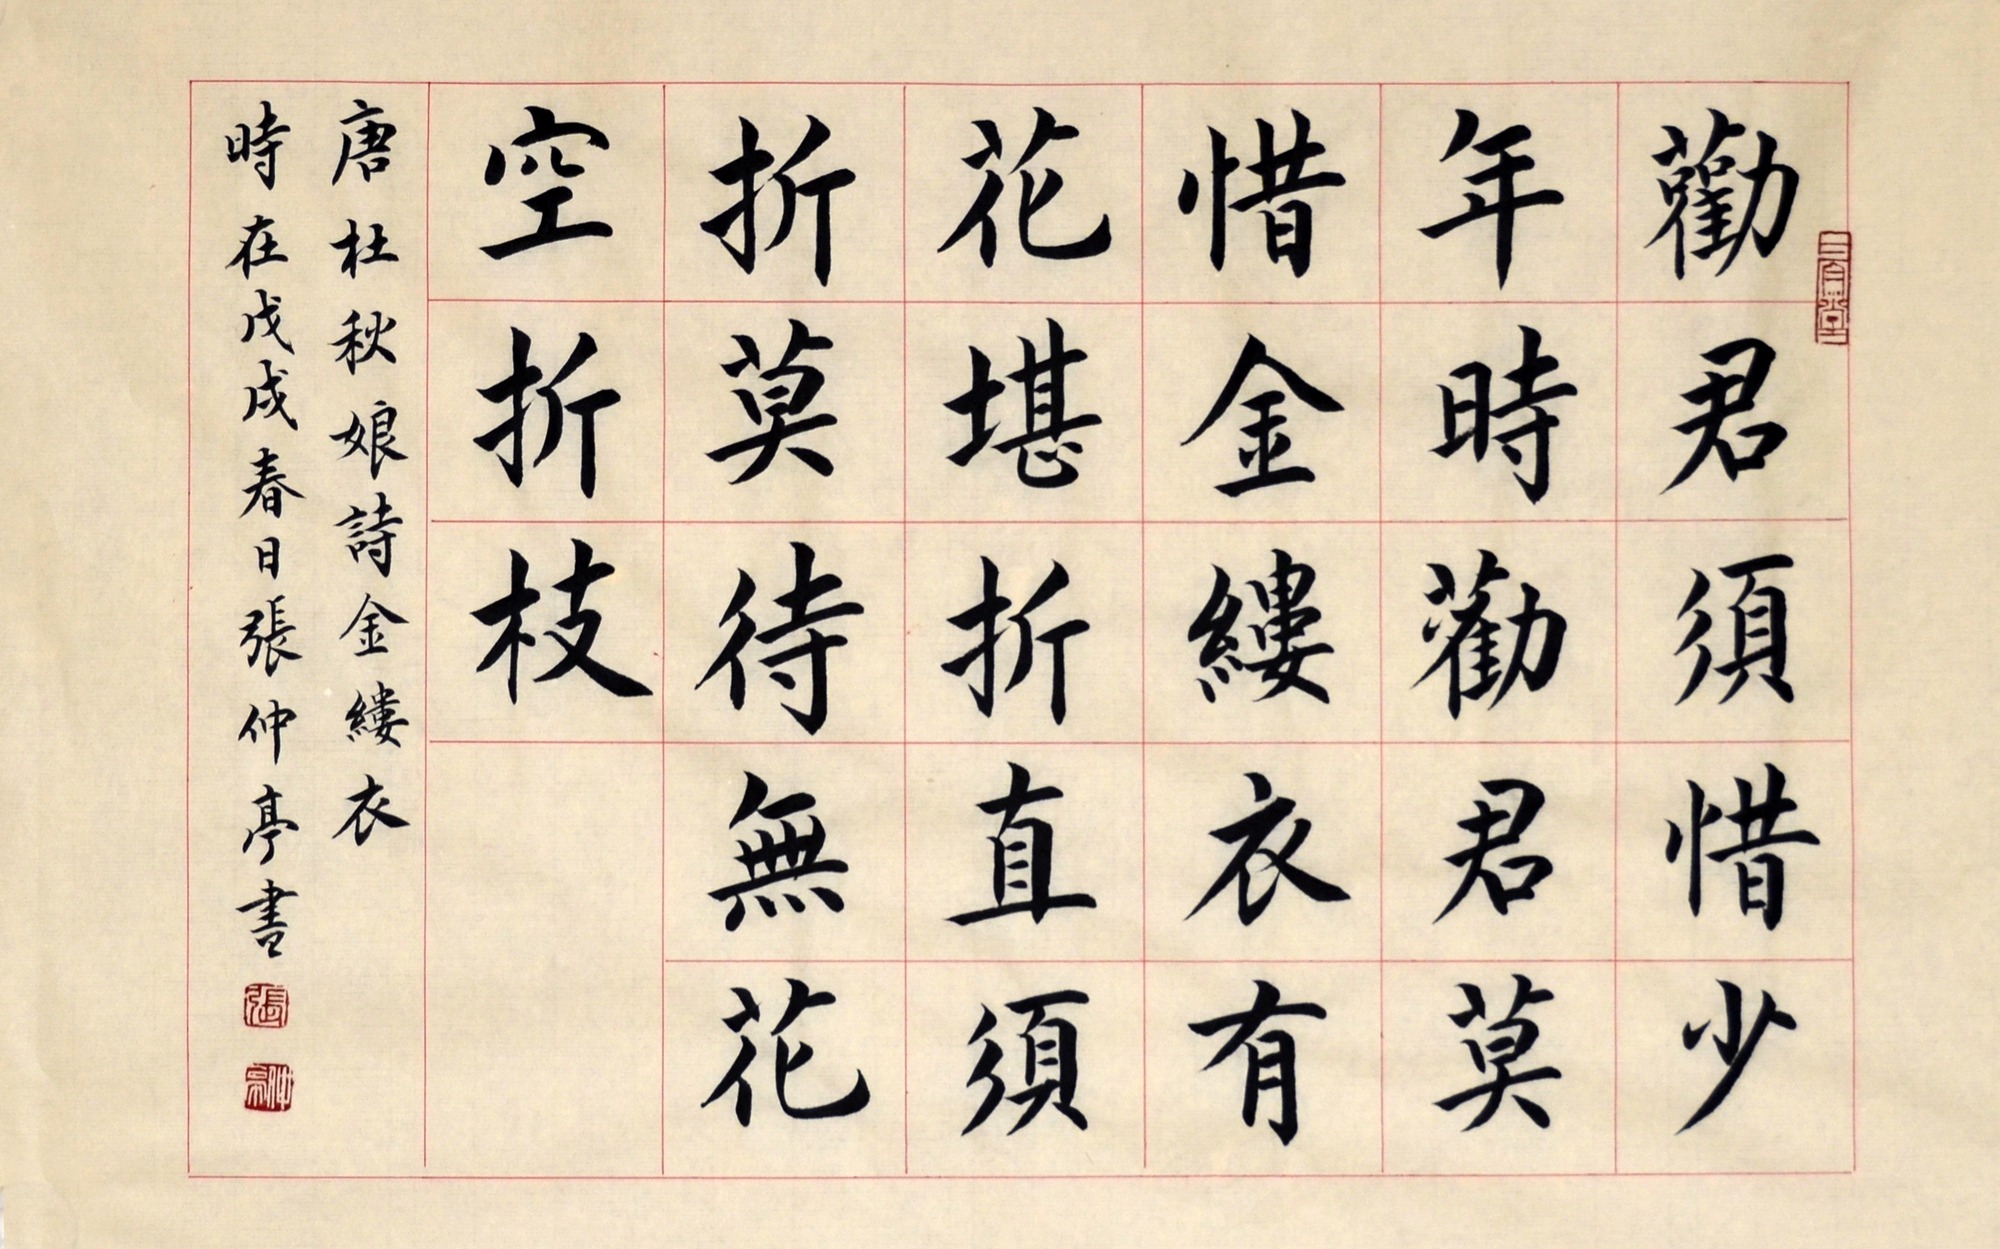 勸君須惜少
年時勸君莫
惜金縷衣有
花堪折直須
折莫待無花
空折枝
唐杜秋娘詩金縷衣
時在戊戌春日張仲亭書